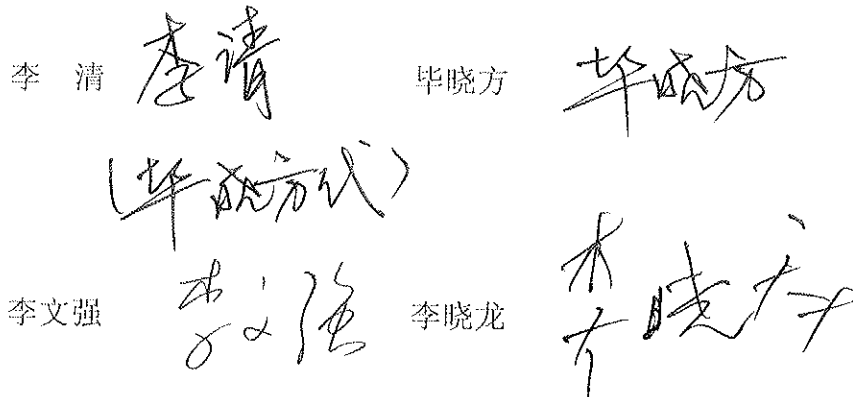 李 清 李清 毕晓方 毕晓方
(毕晓方代)
李文强 李文强 李晓龙 李晓龙